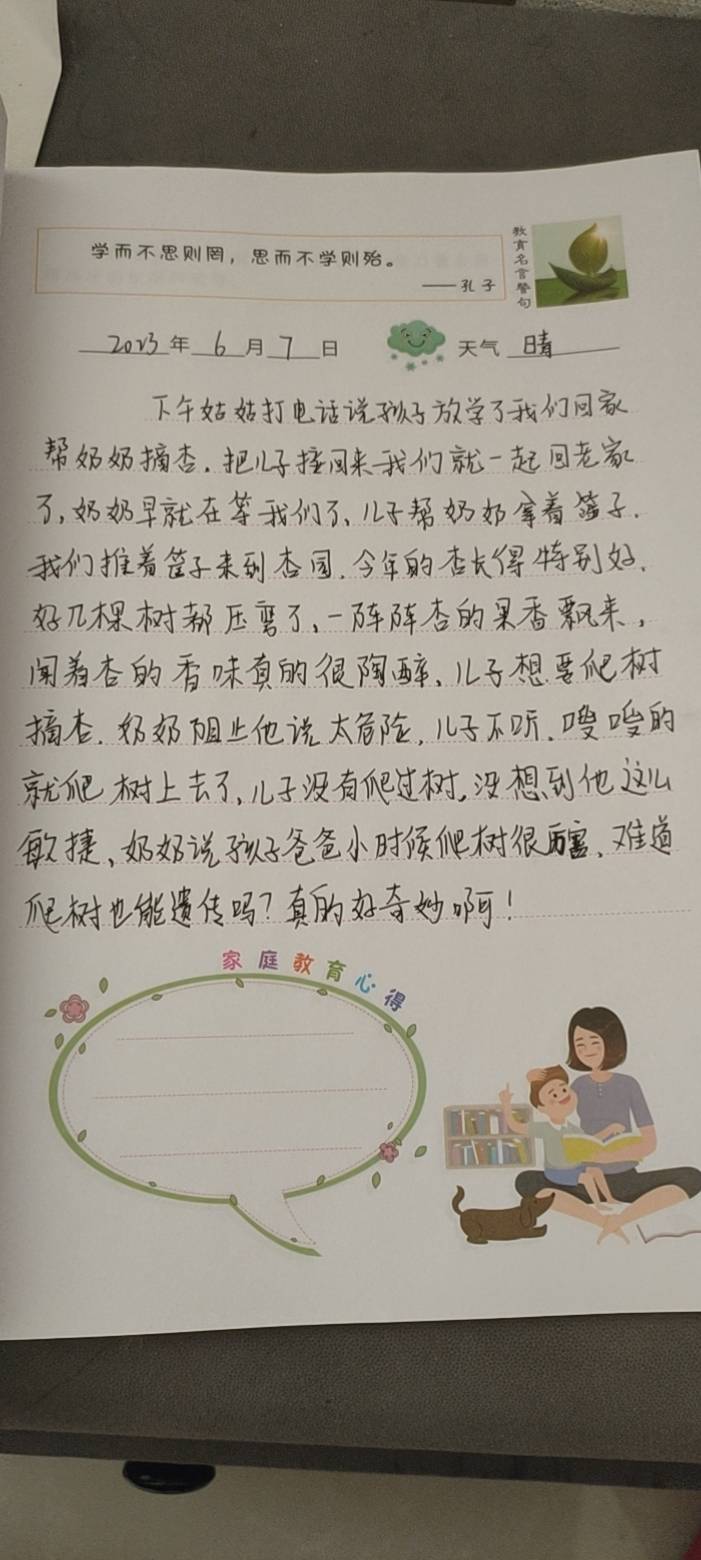 学而不思则罔，思而不学则殆。
——孔子
教育名言警句
2023年6月7日 天气 晴
下午姑姑打电话说孩子放学了我们回家
帮奶奶摘杏.把儿子接回来我们就一起回老家
了,奶奶早就在等我们了、儿子帮奶奶拿着篮子.
我们推着筐子来到杏园.今年的杏长得特别好.
好几棵树都压弯了、一阵阵杏的果香飘来,
闻着杏的香味真的很陶醉、儿子想要爬树
摘杏.奶奶阻止他说太危险,儿子不听.嗖嗖的
就爬树上去了,儿子没有爬过树.没想到他这么
敏捷、奶奶说孩子爸爸小时候爬树很厉害、难道
爬树也能遗传吗?真的好奇妙啊!
家庭教育心得